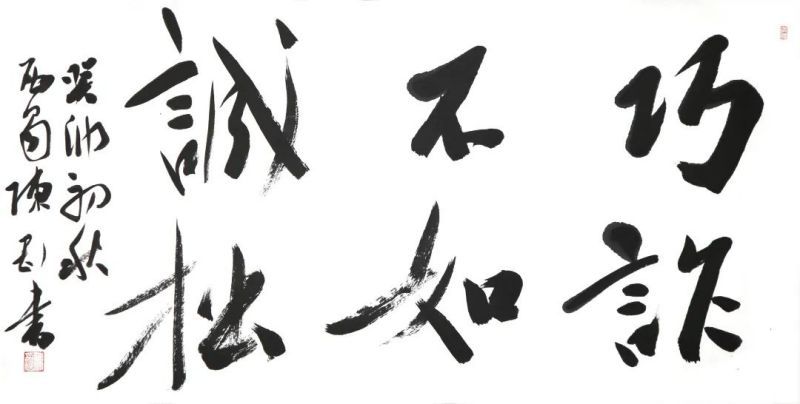 巧詐
不如
誠拙
癸卯初秋
西蜀陳剛書